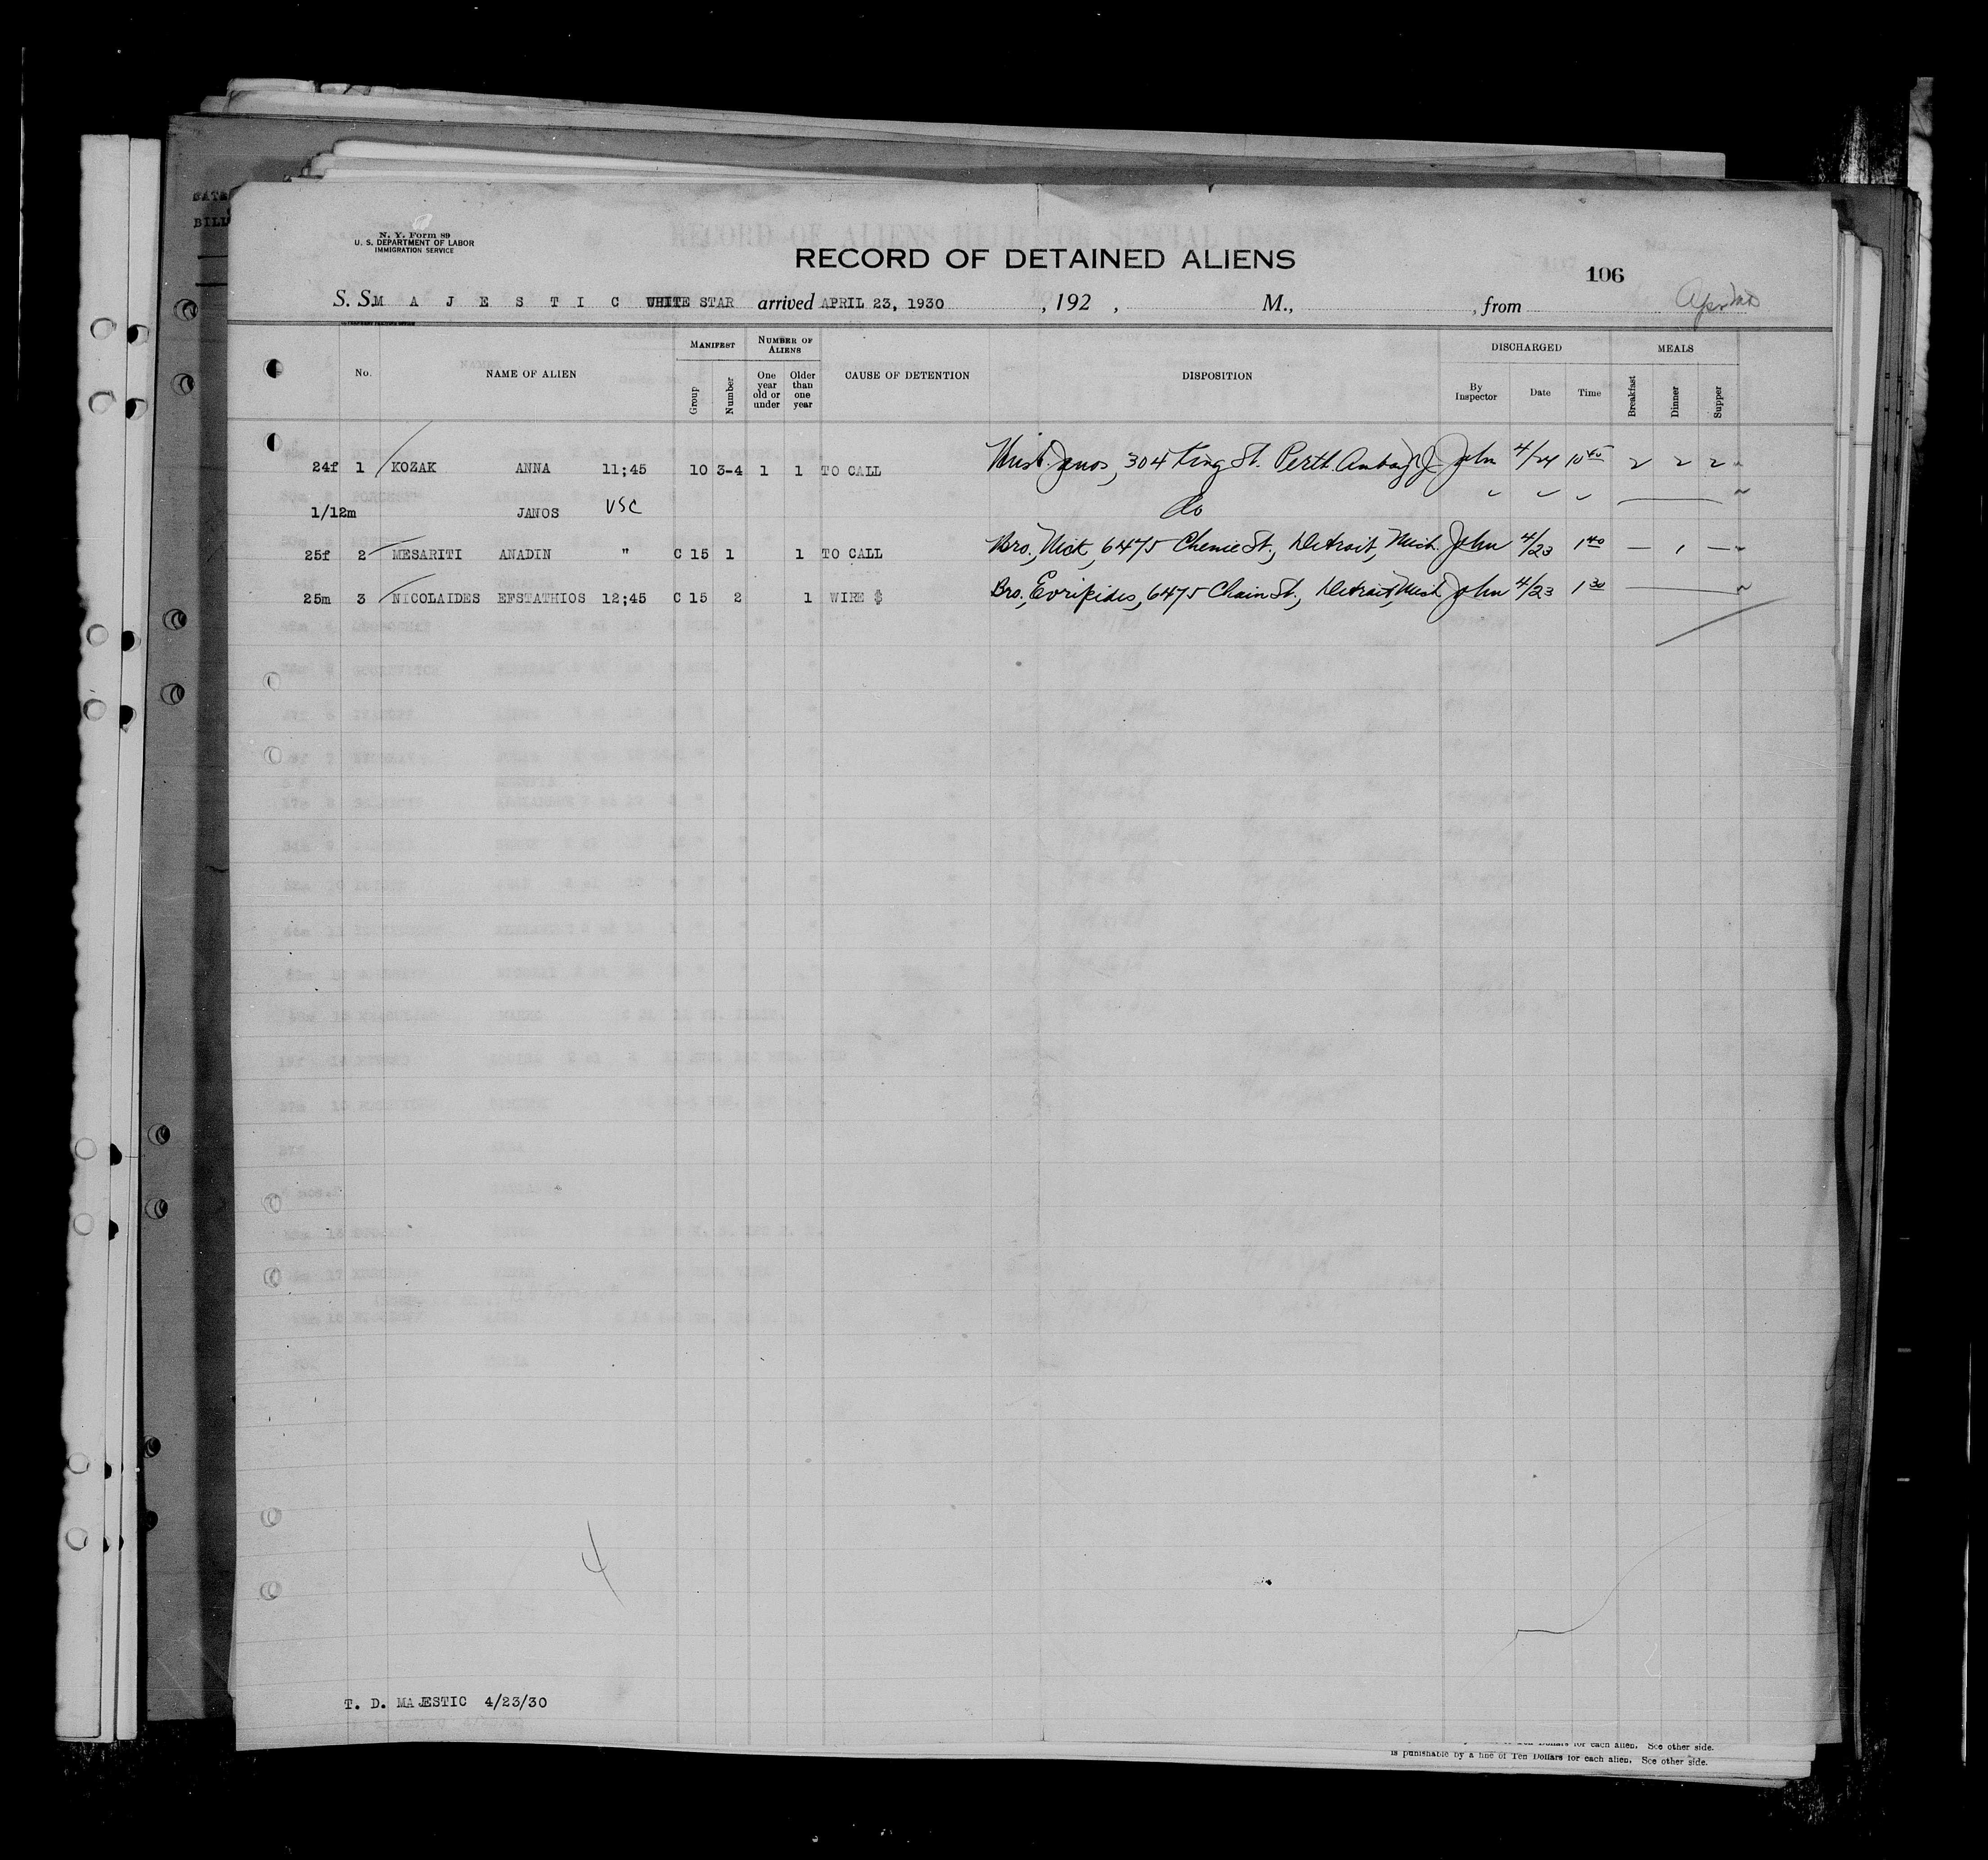 N. Y. Form 89
U. S. DEPARTMENT OF LABOR
IMMIGRATION SERVICE
RECORD OF DETAINED ALIENS
106
S. S. M A J E S T I C WHITE STAR arrived APRIL 23, 1930, 192 , M., , from
No. NAME OF ALIEN MANIFEST Group Number NUMBER OF ALIENS One year old or under Older than one year CAUSE OF DETENTION DISPOSITION DISCHARGED By Inspector Date Time MEALS Breakfast Dinner Supper
24f 1 KOZAK ANNA 11;45 10 3-4 1 1 TO CALL Janos, 304 King St. Perth Amboy NJ John 4/24 10 45 2 2 2
1/12m JANOS VSC do
25f 2 MESARITI ANADIN " C 15 1 1 TO CALL Bro., Nick, 6475 Chenie St., Detroit, Mich. John 4/23 1 40 — 1 —
25m 3 NICOLAIDES EFSTATHIOS 12;45 C 15 2 1 WIRE $ Bro., Evripides, 6475 Chain St., Detroit, Mich John 4/23 1 30
4
T. D. MAJESTIC 4/23/30
is punishable by a fine of Ten Dollars for each alien. See other side.